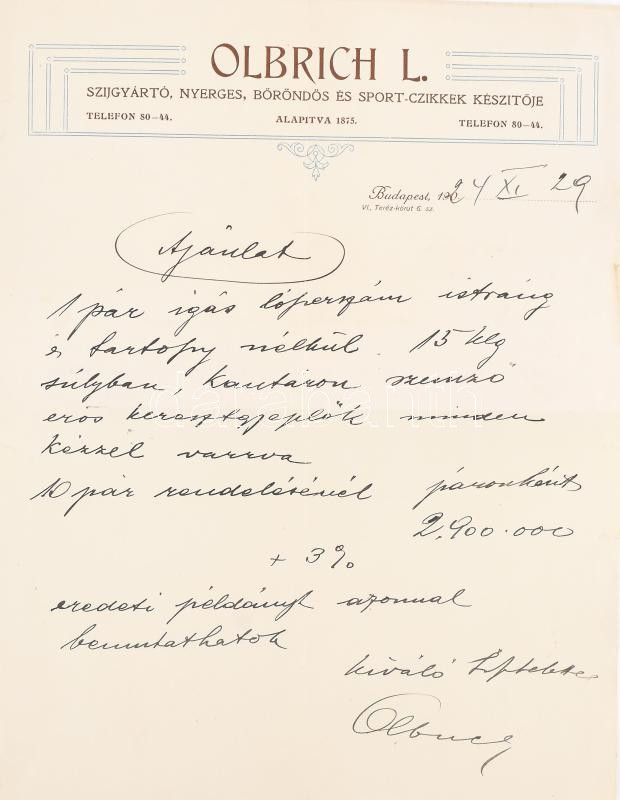 OLBRICH L.
SZIJGYÁRTÓ, NYERGES, BŐRÖNDÖS ÉS SPORT-CZIKKEK KÉSZITŐJE
TELEFON 80-44. ALAPITVA 1875. TELEFON 80-44.
Budapest, 1924 XI. 29
VI., Teréz-körut 6. sz.
Ajánlat
1 pár igás lószerszám istráng
és nélkül. 15 klg
súlyban, kantáron szemző
erős keresztgyeplők minden
kézzel varrva
10 pár rendelésénél páronként
2.900.000
+ 3%
eredeti példányt azonnal
bemutathatok
kiváló
Olbrich
darabanth